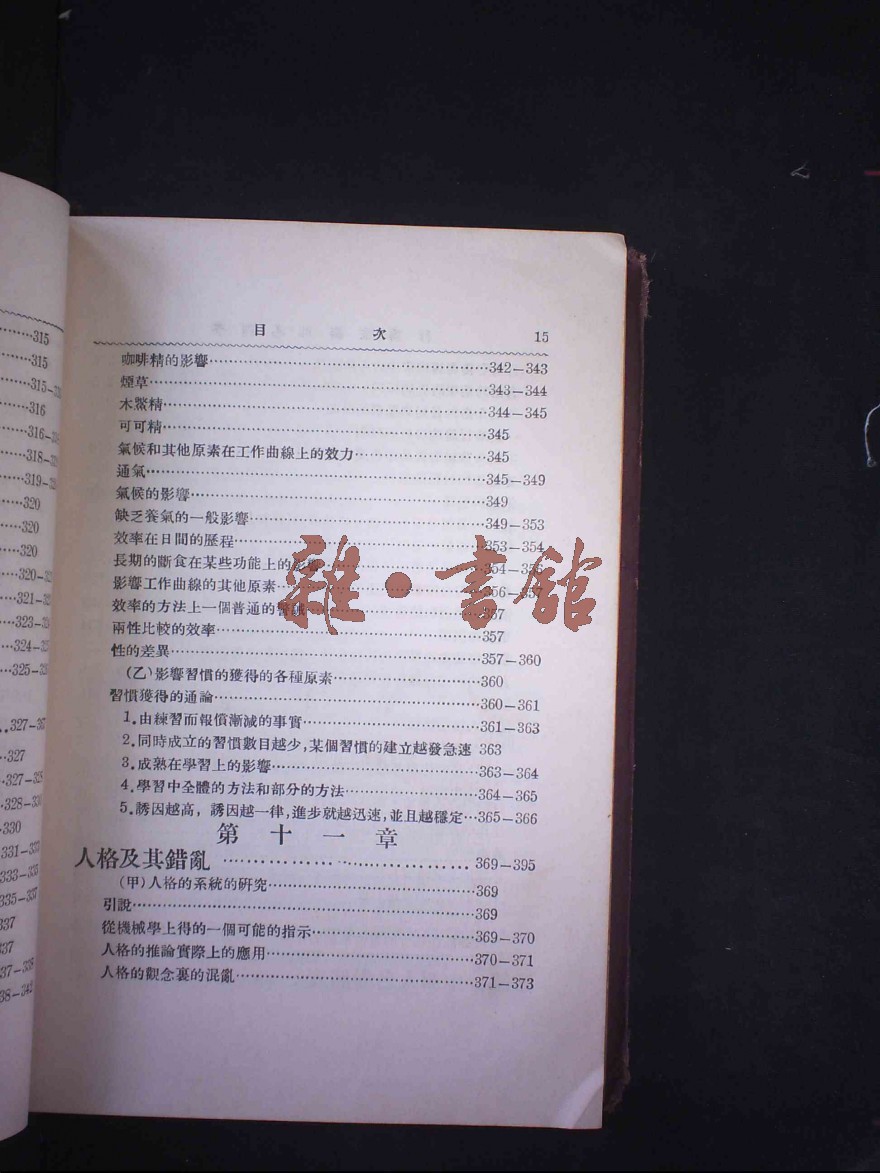 315
315
315—
316
316—
318—
319—
320
320
320
320—
321—
323—
324—
325—
327—
327
327—
328—
330
331—
333—
335—337
337
337
37—338
38—342
目 次 15
咖啡精的影響 342—343
煙草 343—344
木鱉精 344—345
可可精 345
氣候和其他原素在工作曲線上的效力 345
通氣 345—349
氣候的影響 349
缺乏養氣的一般影響 349—353
效率在日間的歷程 353—354
長期的斷食在某些功能上的影響 354—356
影響工作曲線的其他原素 356—357
效率的方法上一個普通的警 357
兩性比較的效率 357
性的差異 357—360
(乙)影響習慣的獲得的各種原素 360
習慣獲得的通論 360—361
1.由練習而報償漸減的事實 361—363
2.同時成立的習慣數目越少,某個習慣的建立越發急速 363
3.成熟在學習上的影響 363—364
4.學習中全體的方法和部分的方法 364—365
5.誘因越高,誘因越一律,進步就越迅速,並且越穩定 365—366
第十一章
人格及其錯亂 369—395
(甲)人格的系統的研究 369
引說 369
從機械學上得的一個可能的指示 369—370
人格的推論實際上的應用 370—371
人格的觀念裏的混亂 371—373
雜·書館